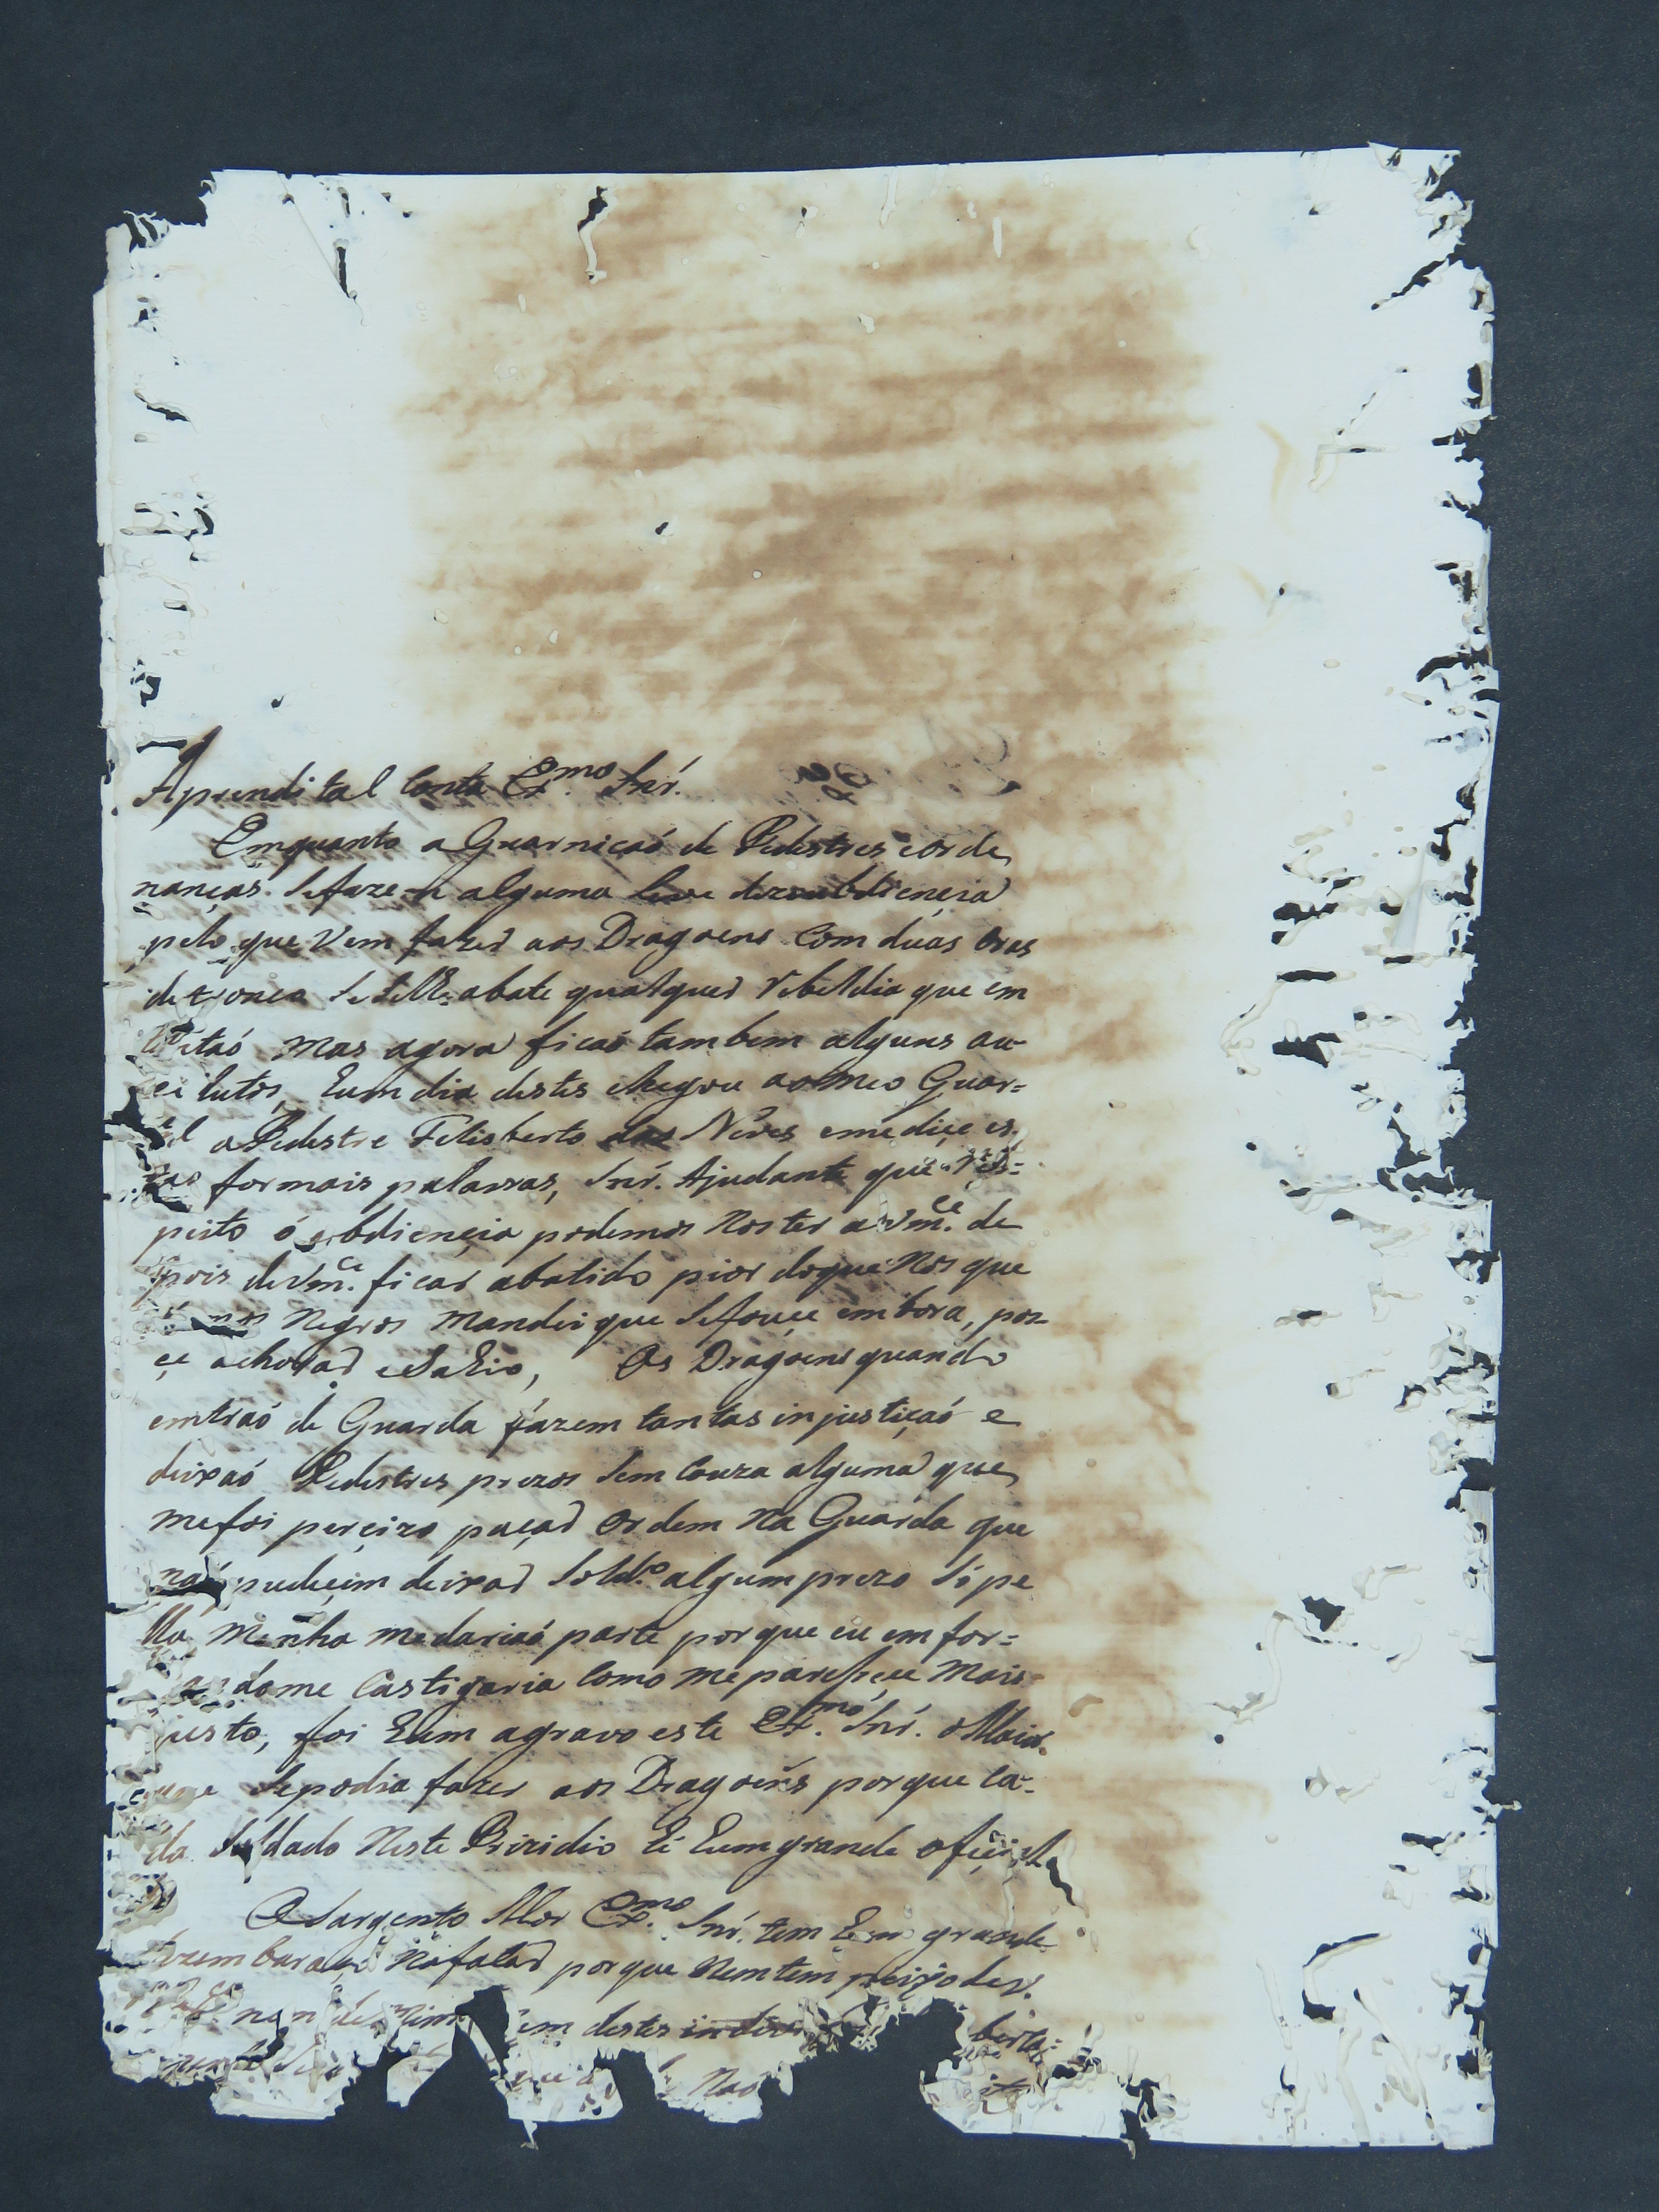 Aprendi tal Conta Ex.mo Snr.
Emquanto a Guarniçaó de Pedestres e orde
nanças. Sefazem alguma Leve dezoubdiençia
pelo que Vem fazer aos Dragoens Com duas oras
de tronco Se lhe abate qualquer rebeldia que em
mas agora ficaó tambem alguns au
lutos, Eum dia destes chegou ao meo Guar=
el o Pedestre Felisberto das Neves eme diçe es
tas formais palavras, Snr. Ajudante que res=
peito ó obdiençia podemos Nos ter a Vm.ce de
pois de Vm.ce ficar abatido pior doque Nos que
Negros Mandei que Sefoçe embora, por
çe achorar eSahio, Os Dragoens quando
emtraó de Guarda fazem tantas injustiçaó e
deixaó Pedestres prezos Sem Couza alguma que
mefoi perçizo paçar Ordem Na Guarda que
naó pudeçim deixar Sold.o algum prezo Só pe
lla Menha medariaó parte porque eu emfor=
dome Castigaria Como me pareseçe Mais
justo, foi Eum agravo este Ex.mo Snr. o Maior
que Sepodia fazer aos Dragoens porque Ca=
da Soldado Neste Prizidio hé Eum grande ofiçial
O Sargento Mor Ex.mo Snr. tem Eum grande
dezembaraço Nofalar porque Nem tem
nem de mim em destes berta=
Nao